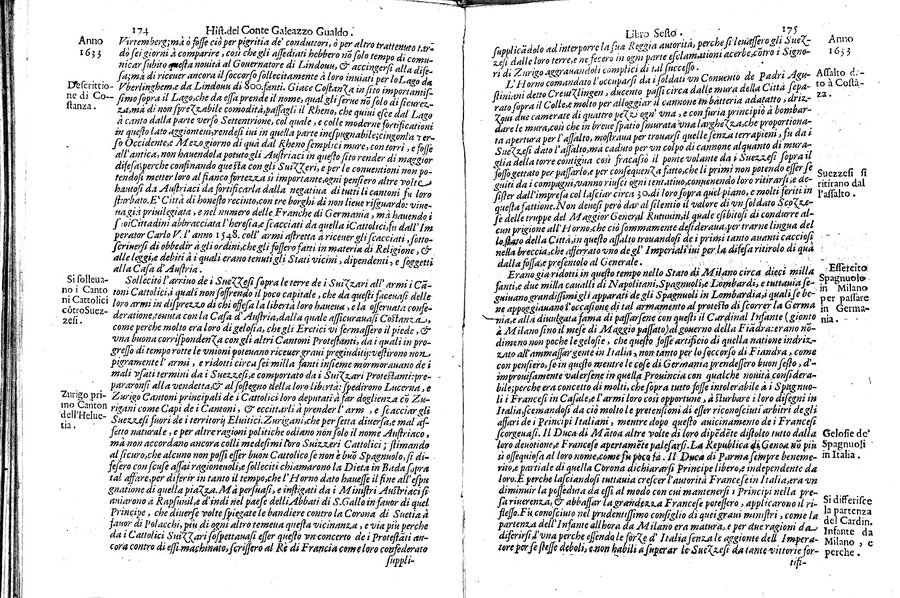 174 Hist. del Conte Galeazzo Gualdo.
Anno
1633
Virtemberg; mà ò fosse ciò per pigritia de' conduttori, ò per altro trattenuto tar-
dò sei giorni à comparire, così che gli assediati hebbero nõ solo tempo di comu-
nicar subito questa nouità al Gouernatore di Lindou, & accingersi alla dife-
sa; mà di riceuer ancora il soccorso sollecitamente à loro inuiati per lo Lago da
Descrittio-
ne di Co-
stanza.
Vberlinghem, e da Lindou di 800. fanti. Giace Costanza in sito importantis-
simo sopra il Lago, che da essa prende il nome, qual gli serue nõ solo di sicurez-
za, mà di non sprezzabile commodità, passagli il Rheno, che quiui esce dal Lago
à canto dalla parte verso Settentrione, col quale, e colle moderne fortificationi
in questo lato aggionteui, rendesi iui in quella parte inespugnabile; cingonla ver-
so Occidente, e Mezo giorno di quà dal Rheno semplici mure, con torri, e fosse
all'antica, non hauendola potuto gli Austriaci in questo sito render di maggior
difesa; perche confinando questa con gli Suizzeri, e per le conuentioni non po-
tendosi metter loro al fianco fortezza sì importante, ogni pensiero altre volte
hautosi da Austriaci da fortificarla dalla negatiua di tutti i cantoni fu loro
sturbato. E' Città di honesto recinto, con tre borghi di non lieue risguardo: viue-
ua già priuilegiata, e nel numero delle Franche di Germania, mà hauendo i
suoi Cittadini abbracciata l'heresia, e scacciati da quella i Cattolici, fu dall'Im
perator Carlo V. l'anno 1548. coll'armi astretta à riceuer gli scacciati, sotto-
scriuersi di obbedir à gli ordini, che gli fossero fatti in materia di Religione, &
alle leggi, e debiti à i quali erano tenuti gli Stati vicini, dipendenti, e soggetti
alla Casa d'Austria.
Si solleua-
no i Canto
ni Cattolici
cõtro Suez-
zesi.
Sollecitò l'arriuo de i Suezzesi sopra le terre de i Suizzari all'armi i Cã-
toni Cattolici, i quali non soffrendo il poco capitale, che da questi faceuasi delle
loro armi in disprezzo di chi offesa la libertà loro haueua, e la osseruata confe-
deratione, tenuta con la Casa d'Austria, dalla quale assicurauasi Costanza,
come perche molto era loro di gelosia, che gli Eretici vi fermassero il piede, &
vna buona corrispondenza con gli altri Cantoni Protestanti, da i quali in pro-
gresso di tempo rotte le vnioni potenano riceuer graui pregiuditij: vestirono non
pigramente l'armi, e ridotti circa sei milla fanti insieme mormorauano de i
mali vsati termini da i Suezzesi, e comportato da i Suizzari Protestanti: pre-
parauonsi alla vendetta, & al sostegno della loro libertà: spedirono Lucerna, e
Zurigo pri
mo Canton
dell'Helue-
tia.
Zurigo Cantoni principali de i Cattolici loro deputati à far doglienza cõ Zu-
rigani come Capi de i Cantoni, & eccittarli à prender l'armi, e scacciar gli
Suezzesi fuori de i territorij Eluitici. Zurigani, che per setta diuersa, e mal af-
fetto naturale, e per altre ragioni politiche odiano non solo il nome Austriaco,
mà non accordano ancora colli medesimi loro Suizzeri Cattolici; stimando
al sicuro, che alcuno non possi esser buon Cattolico se non è buõ Spagnuolo, si di-
fesero con scuse assai ragioneuoli, e solleciti chiamarono la Dieta in Bada sopra
tal affare, per diferir in tanto il tempo, che l'Horno dato hauesse il fine all'espu
gnatione di quella piazza. Mà persuasi, e instigati da i Ministri Austriaci si
auiarono a Rapsuuil, e d'indi nel paese dell'Abbati di S. Gallo in fauor di quel
Principe, che diuerse volte spiegate le bandiere contro la Corona di Suetia à
fauor di Polacchi, più di ogni altro temeua questa vicinanza, e via più perche
da i Cattolici Suizzari sospettauasi esser questo vn concerto de i Protestãti an-
cora contro di essi machinato, scrissero al Rè di Francia come loro confederato
suppli-
Libro Sesto. 175
Anno
1633
supplicãdolo ad interporre la sua Reggia autorità, perche si leuassero gli Suez-
zesi dalle loro terre, e ne fecero in ogni parte esclamationi acerbe, cõtro i Signo-
ri di Zurigo aggrauandoli complici di tal successo.
Assalto da-
to à Costã-
za.
L'Horno comandato l'occuparsi da i soldati vn Conuento de Padri Agu-
stiniani detto Creutzlingen, ducento passi circa dalle mura della Città sepa-
rato sopra il Colle, e molto per alloggiar il cannone in batteria adattato, driz-
zoui due camerate di quattro pezzi ogn' vna, e con furia principiò à bombar-
dare le mura, così che in breue spatio smurata vna larghezza, che proportiona-
ta apertura per l'assalto, mostraua per trouarsi quelle senza terrapieni, fu da i
Suezzesi dato l'assalto, mà caduto per vn colpo di cannone alquanto di mura-
glia della torre contigua così fracassò il ponte volante da i Suezzesi sopra il
fosso gettato per passarlo, e per consequenza fatto, che li primi non potendo esser se
Suezzesi si
ritirano dal
l'assalto.
guiti da i compagni, vano riuscì ogni tentatiuo, conuenendo loro ritirarsi, e de-
sister dall'impresa col lasciar circa 30. di loro sopra quel piano, e molti feriti in
questa fattione. Non deuesi però dar al silentio il valor di vn soldato Scozze-
se delle truppe del Maggior General Rutuin, il quale esibitosi di condurre al-
cun prigione all'Horno, che ciò sommamente desideraua, per trarne lingua del
lo stato della Città, in questo assalto trouandosi de i primi tanto auanti caccioßi
nella breccia, che afferrato vno de gl' Imperiali iui per la difesa ritirolo di quà
dalla fossa, e presentolo al Generale.
Essercito
Spagnuolo
in Milano
per passare
in Germa-
nia.
Erano già ridotti in questo tempo nello Stato di Milano circa dieci milla
fanti, e due milla caualli di Napolitani, Spagnuoli, e Lombardi, e tuttauia se-
guiuano grandissimi gli apparati de gli Spagnuoli in Lombardia, i quali se be-
ne appoggiauano l'occasione di tal armamento al protesto di scorrer la Germa
nia, e alla diuulgata fama di passarsene con questi il Cardinal Infante (gionto
à Milano sino il mese di Maggio passato) al gouerno della Fiãdra: erano nõ-
dimeno non poche le gelosie, che questo fosse artificio di quella natione indriz-
zato all'ammassar gente in Italia, non tanto per lo soccorso di Fiandra, come
con pensiero, se in questo mentre le cose di Germania prendessero buon sesto, d'-
improuisamente valersene in quella Prouincia con qualche nouità conside ra-
bile; perche era concetto di molti, che sopra tutto fosse intolerabile à i Spagnuo-
li i Francesi in Casale, e l'armi loro così opportune, à sturbar i loro disegni in
Italia, scemandosi da ciò molto le pretensioni di esser riconosciuti arbitri degli
affari de i Principi Italiani, mentre dopo questo auicinamento de i Francesi
Gelosie de'
Spagnuoli
in Italia.
scorgeuasi. Il Duca di Mãtoa altre volte di loro dipẽdẽte distolto tutto dalla
loro deuotione, e Francese apertamente palesarsi. La Republica di Genoa, nõ più
sì ossequiosa al loro nome, come fù poco fà. Il Duca di Parma sempre beneme-
rito, e partiale di quella Corona dichiararsi Principe libero, e independente da
loro. E perche lasciandosi tuttauia crescer l'autorità Francese in Italia, era vn
diminuir la posseduta da essi al modo con cui mantenersi i Principi nella pre-
sta riuerenza, & abbassar la grandezza Francese potessero, applicarono il ri-
Si differisce
la partenza
del Cardin.
Infante da
Milano, e
perche.
stesso. Fù conosciuto nel prudentissimo consiglio di quei graui ministri, come la
partenza dell'Infante all hora da Milano era matura, e per due ragioni da
diferirsi l'vna perche essendo le forze d'Italia senza le aggionte dell Impera-
tore per se stesse deboli, e non habili a superar le Suezzesi da tante vittorie for-
tifi-